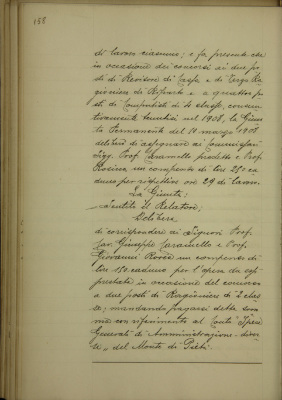 158
di lavoro ciascuno; e fa presente che
in occasione dei concorsi ai due po-
sti di Revisore di Cassa e di Terzo Ra-
gioniere di Riparti e a quattro po-
sti di Computisti di 4ª classe, consecu-
tivamente tenutisi nel 1908, la Giun-
ta Permanente del 11 marzo 1908
deliberò di assegnare ai Commissari
Sigg. Prof. Caramello predetto e Prof.
Rosina un compenso di lire 250 ca-
dauno per rispettive ore 29 di lavoro.
La Giunta:
Sentito il Relatore;
Delibera
di corrispondere ai Signori Prof.
Cav. Giuseppe Caramello e Prof.
Giovanni un compenso di
lire 150 caduno per l'opera da essi
prestata in occasione del concorso
a due posti di Ragioniere di 2ª clas-
se; mandando pagarsi detta som-
ma con riferimento al Conto "Spese
Generali di Amministrazione - diver-
se" del Monte di Pietà.